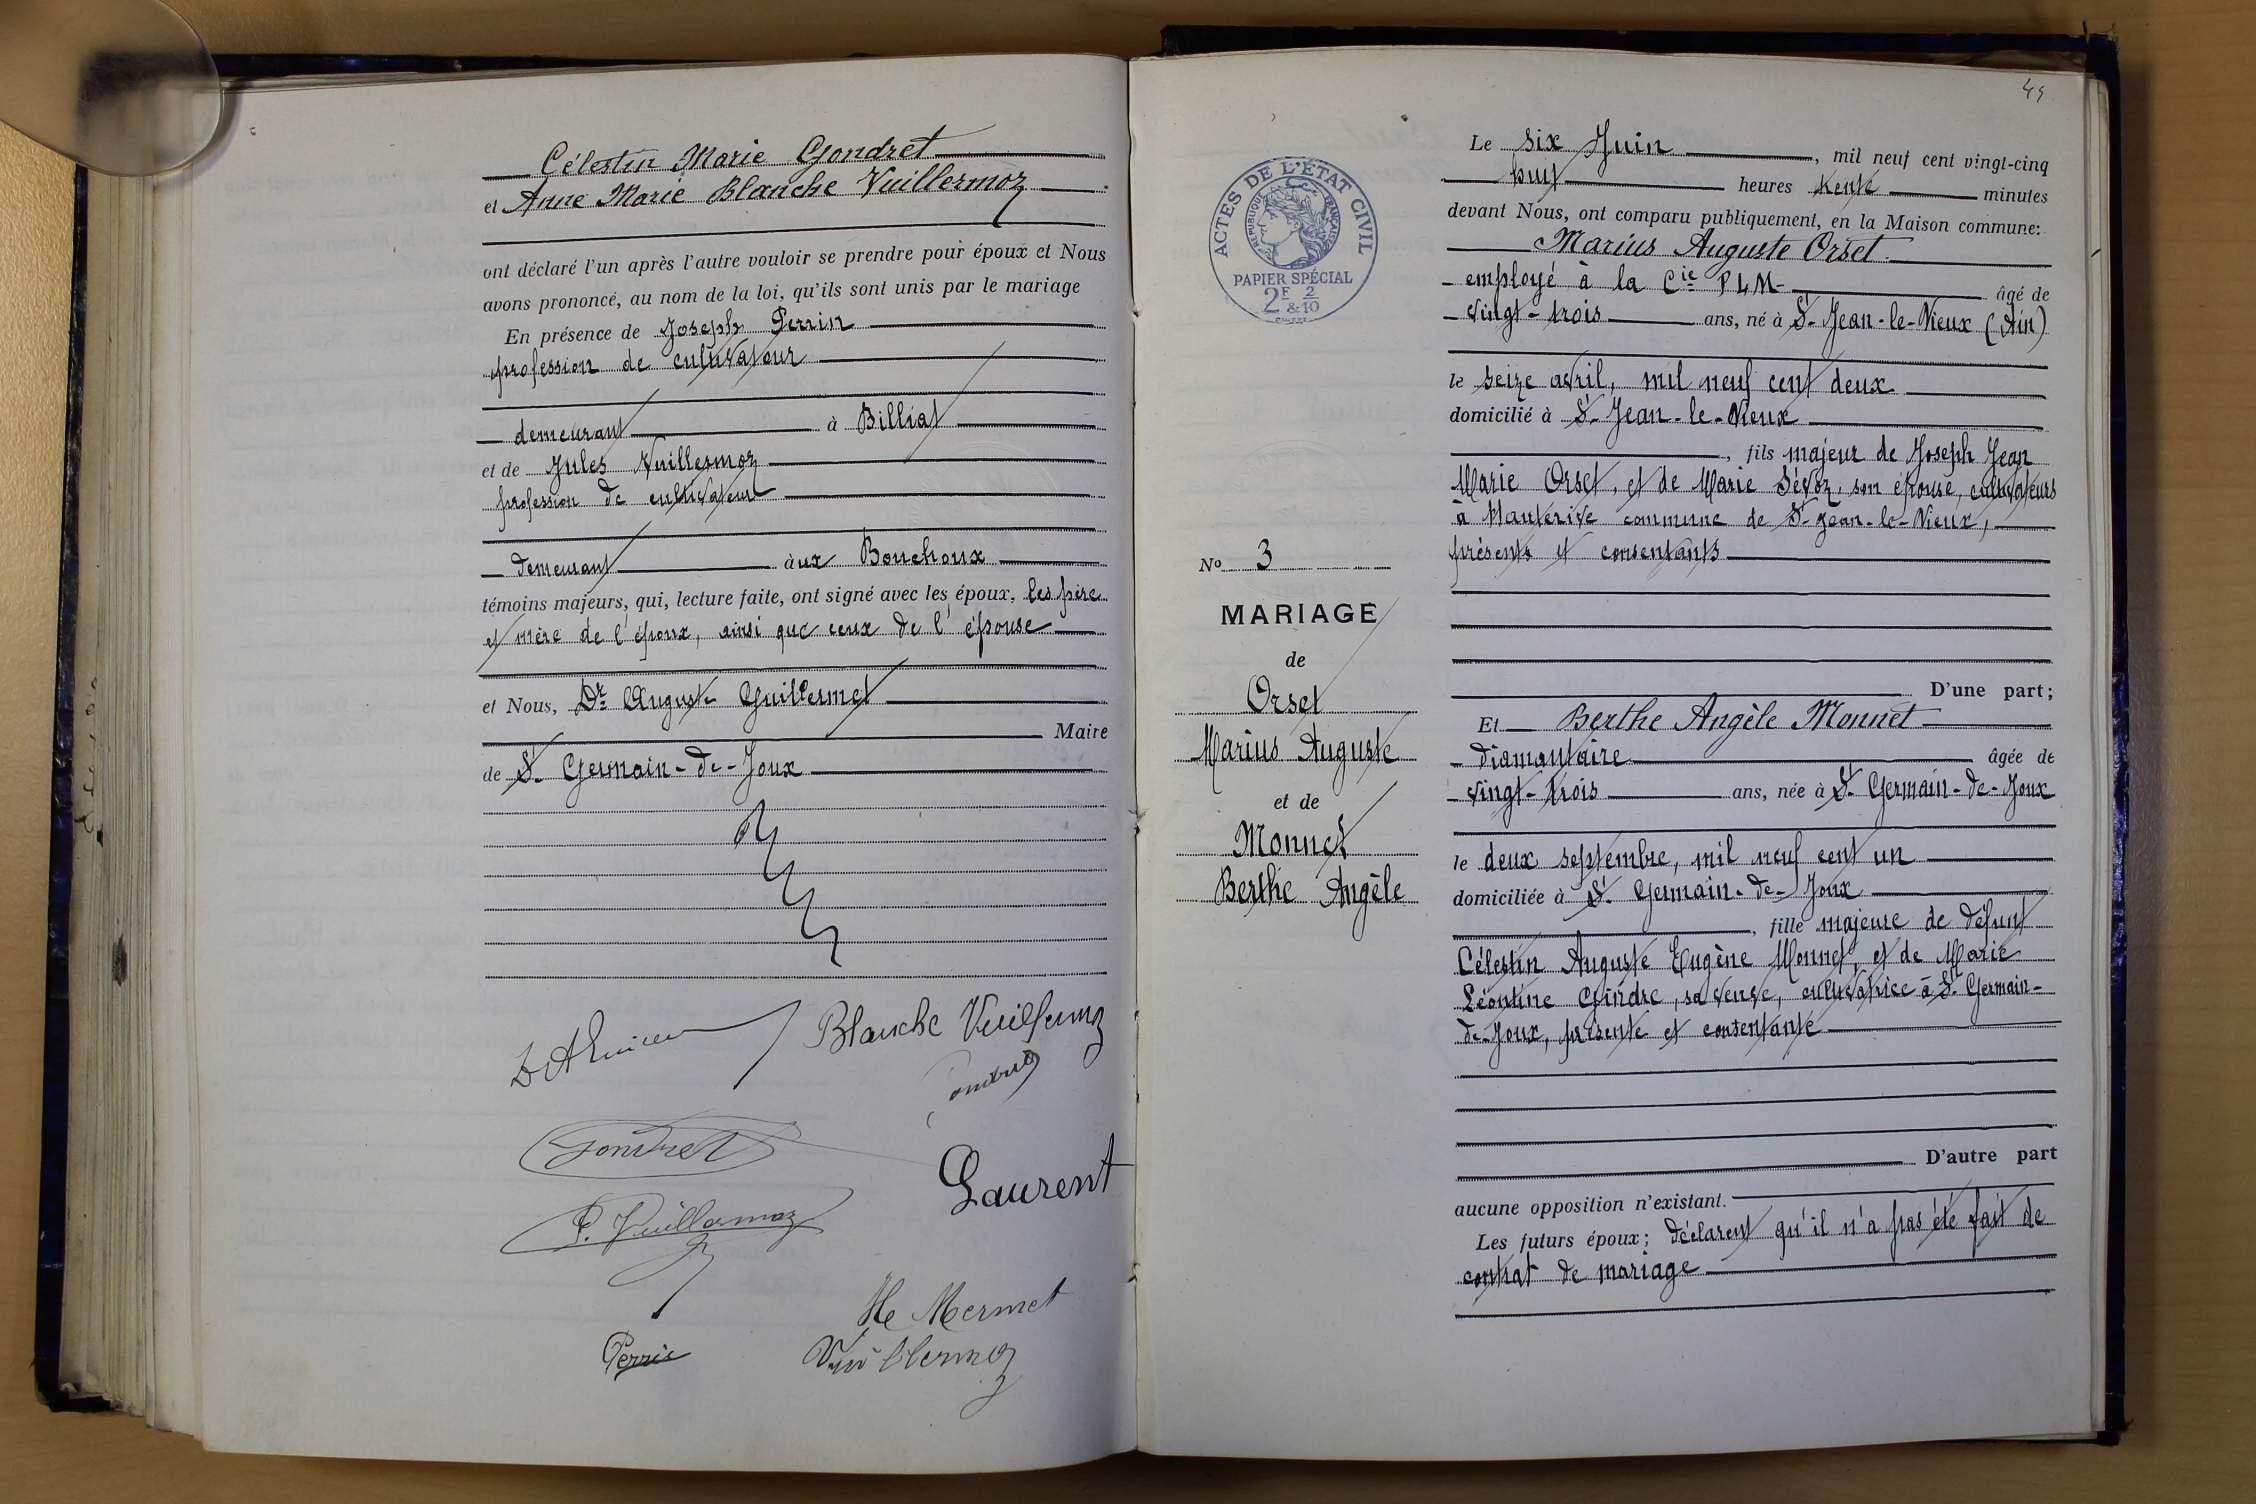 Célestin Marie Gondret
et Anne Marie Blanche Vuillermoz
ont déclaré l'un après l'autre vouloir se prendre pour époux et Nous
avons prononcé, au nom de la loi, qu'ils sont unis par le mariage
En présence de Joseph Perrin
profession de cultivateur
demeurant à Billiat
et de Jules Vuillermoz
profession de cultivateur
demeurant aux Bouchoux
témoins majeurs, qui, lecture faite, ont signé avec les époux, les père
et mère de l'époux, ainsi que ceux de l'épouse
et Nous, Dr Auguste Guillermet
Maire
de St Germain-de-Joux
Blanche Vuillermoz
Gondret
P. Vuillermoz
Laurent
Mermet
Vuillermoz
49
ACTES DE L'ÉTAT CIVIL
RÉPUBLIQUE FRANÇAISE
PAPIER SPÉCIAL
2F & 2/10
No 3
MARIAGE
de
Orset
Marius Auguste
et de
Monnet
Berthe Angèle
Le six Juin, mil neuf cent vingt-cinq
huit heures trente minutes
devant Nous, ont comparu publiquement, en la Maison commune:
Marius Auguste Orset
employé à la Cie PLM- âgé de
vingt-trois ans, né à St-Jean-le-Vieux (Ain)
le seize avril, mil neuf cent deux
domicilié à St-Jean-le-Vieux
, fils majeur de Joseph Jean
Marie Orset, et de Marie Sévoz, son épouse, cultivateurs
à Hauterive commune de St-Jean-le-Vieux,
présents et consentants
D'une part;
Et Berthe Angèle Monnet
diamantaire âgée de
vingt-trois ans, née à St Germain-de-Joux
le deux septembre, mil neuf cent un
domiciliée à St Germain-de-Joux
, fille majeure de défunt
Célestin Auguste Eugène Monnet, et de Marie
Léontine Gindre, sa veuve, cultivatrice à St Germain-
de-Joux, présente et consentante
D'autre part
aucune opposition n'existant.
Les futurs époux; déclarent qu'il n'a pas été fait de
contrat de mariage